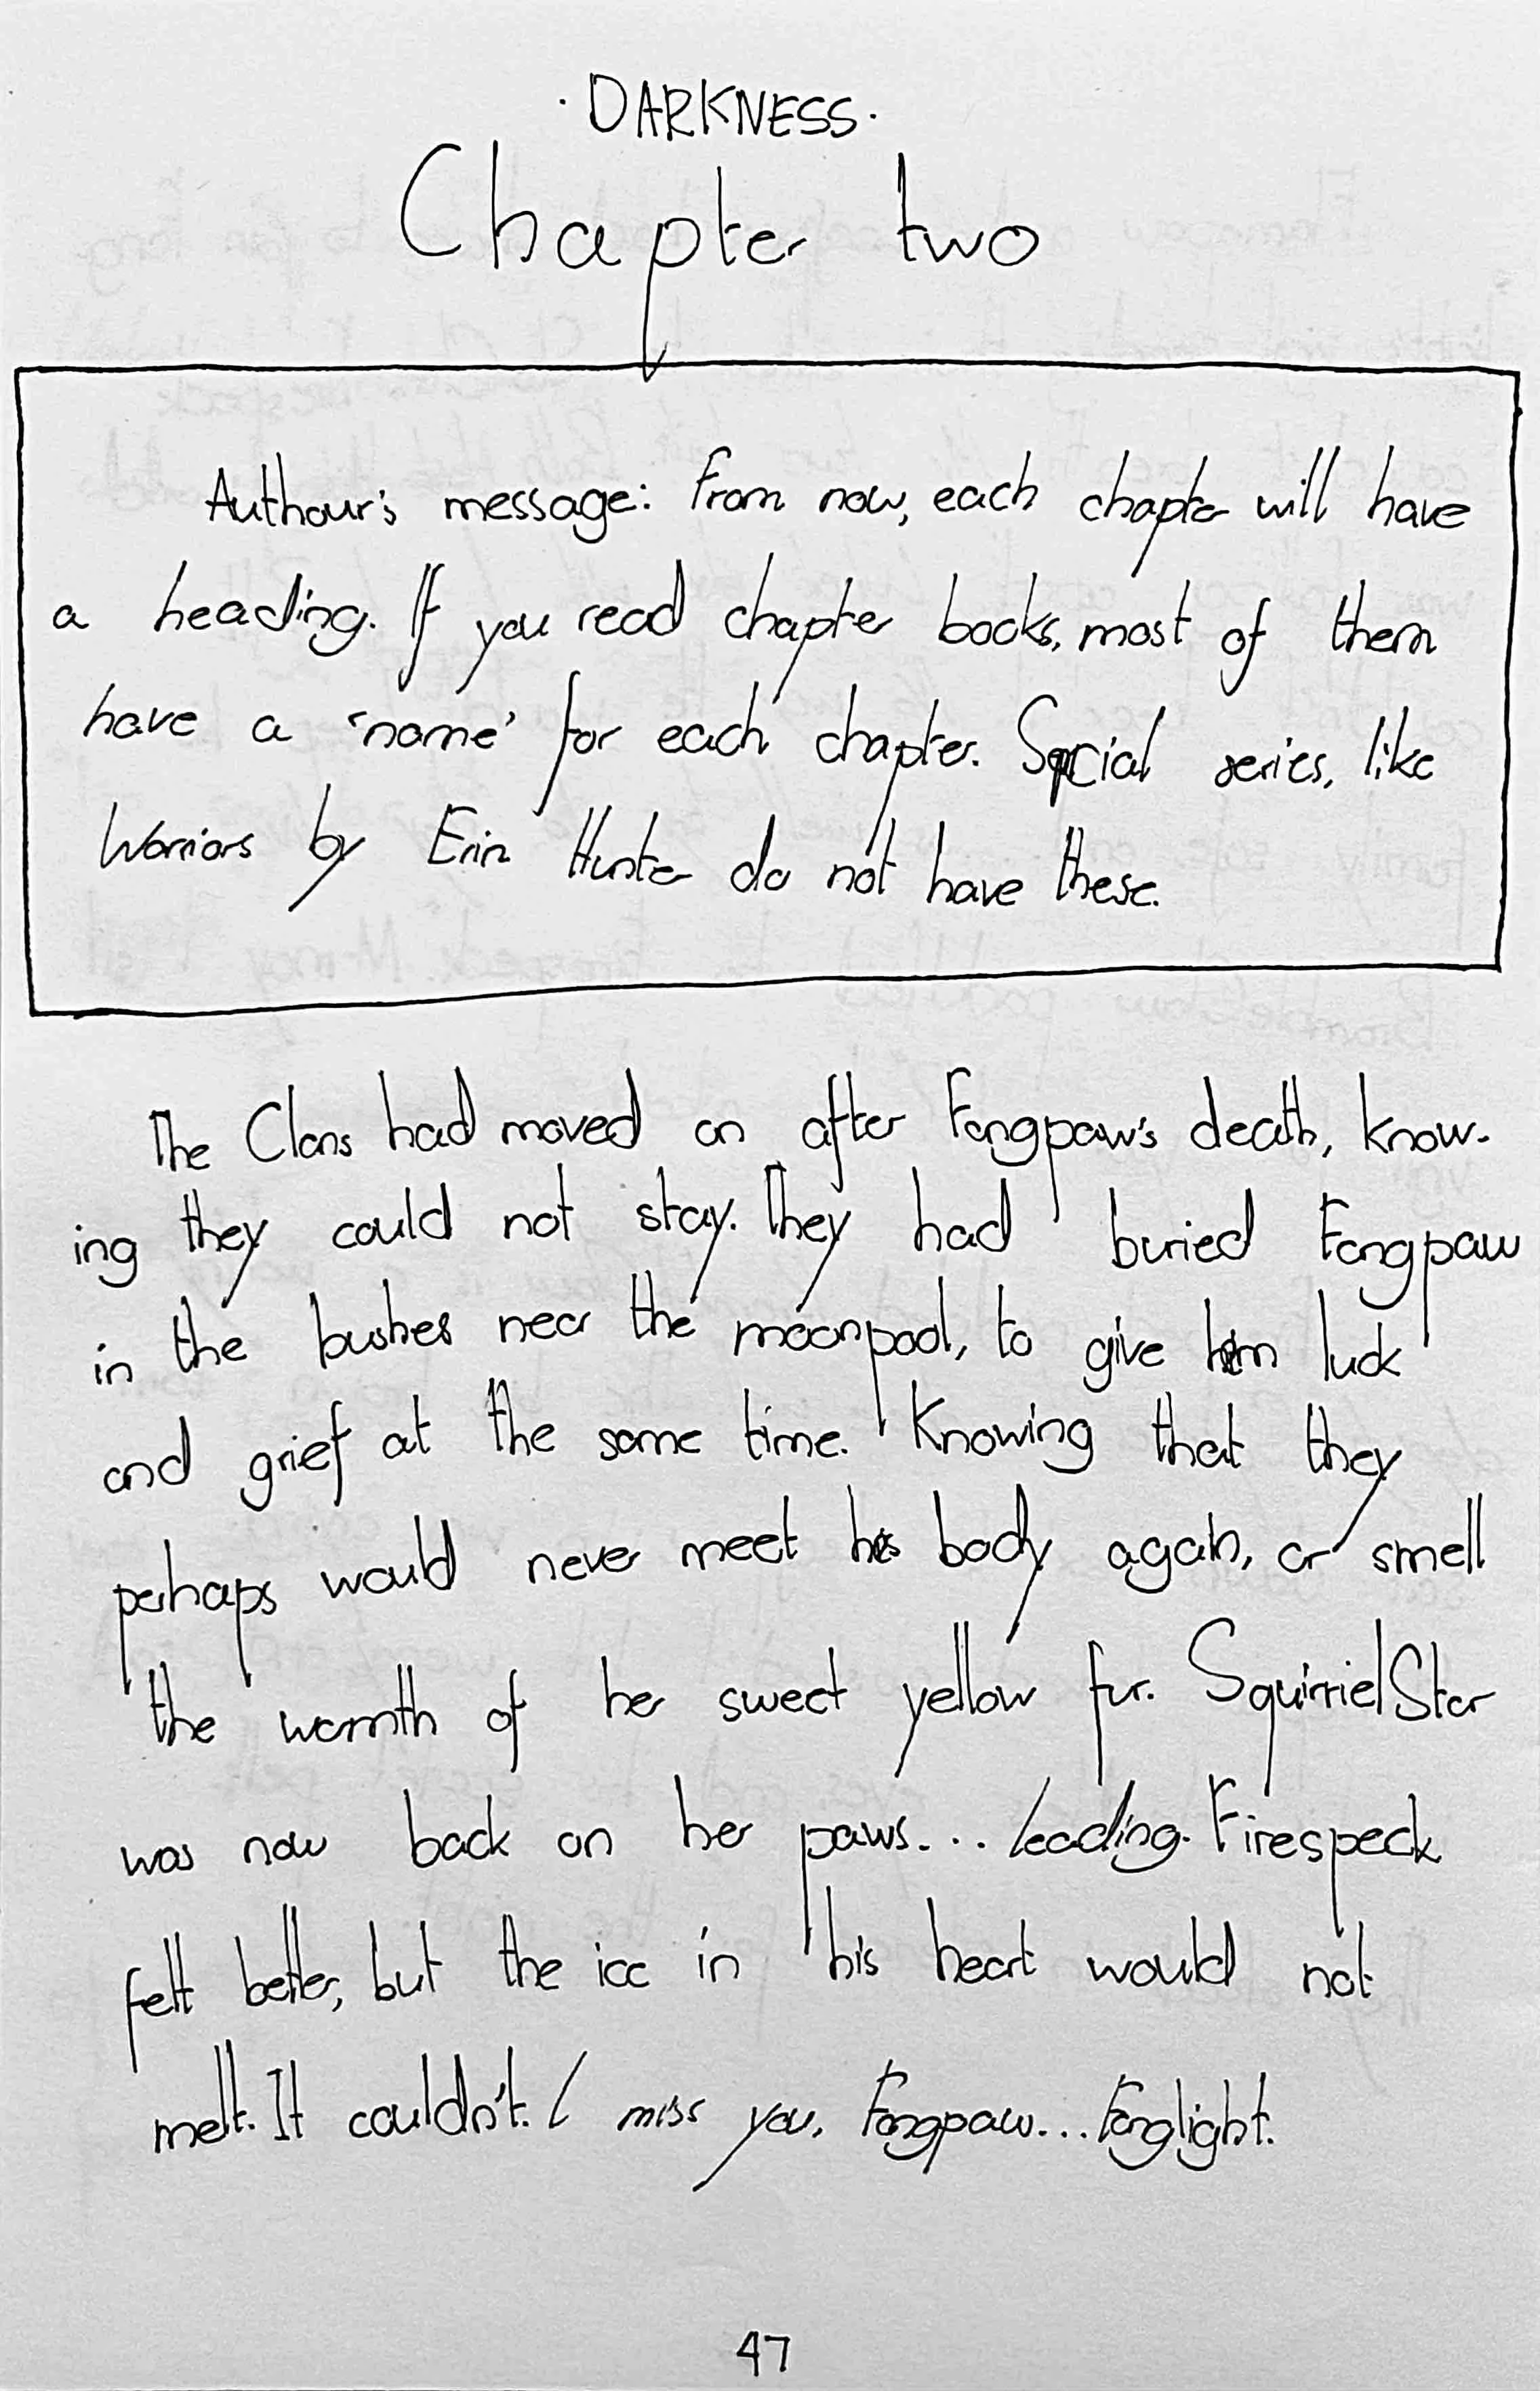 · DARKNESS ·
Chapter two
Authour's message: From now, each chapter will have
a heading. If you read chapter books, most of them
have a 'name' for each chapter. Special series, like
Warriors by Erin Hunter do not have these.
The Clans had moved on after Fangpaw's death, know-
ing they could not stay. They had buried Fangpaw
in the bushes near the moonpool, to give him luck
and grief at the same time. Knowing that they
perhaps would never meet his body again, or smell
the warmth of her sweet yellow fur. SquirrielStar
was now back on her paws... leading. Firespeck
felt better, but the ice in his heart would not
melt. It couldn't. I miss you, Fangpaw... Fanglight.
47